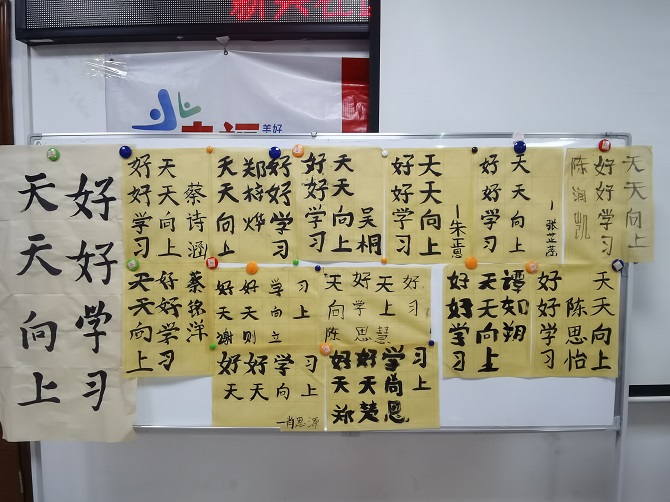 美好
好好学习
天天向上
好好学习
天天向上
蔡诗涵
天天向上
郑梓烨
好好学习
好好学习
天天向上
吴桐
好好学习
天天向上
好好学习
天天向上
陈润凯
好好学习
天天向上
天天向上
好好学习
蔡铭洋
好好学习
天天向上
谢则立
天好天好
学上习
陈思慧
好好学习
天天向上
谭如朔
好好学习
陈思怡
天天向上
好好学习
天天向上
一肖思源
好好学习
天天尚上
郑楚恩